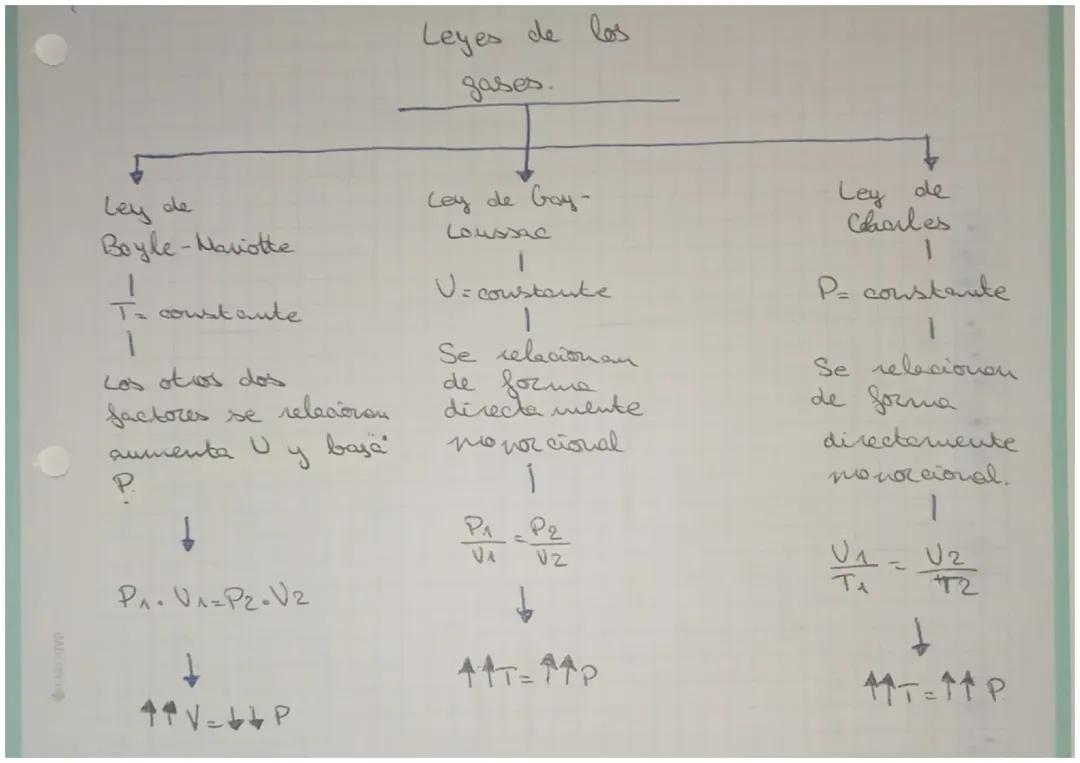 Leyes de los
gases.
Ley de
Boyle-Mariotte
T= constante
Los otros dos
factores se relacionan
aumenta V y baja
P.
P1 · V1=P2 · V2
↑↑ V=↓↓ P
Ley de Gay-
Loussac
V=constante
Se relacionan
de forma
directamente
proporcional
P1/V1 = P2/V2
↑↑T=↑↑P
Ley de
Charles
P= constante
Se relacionan
de forma
directamente
proporcional.
V1/T1 = V2/T2
↑↑T=↑↑ P